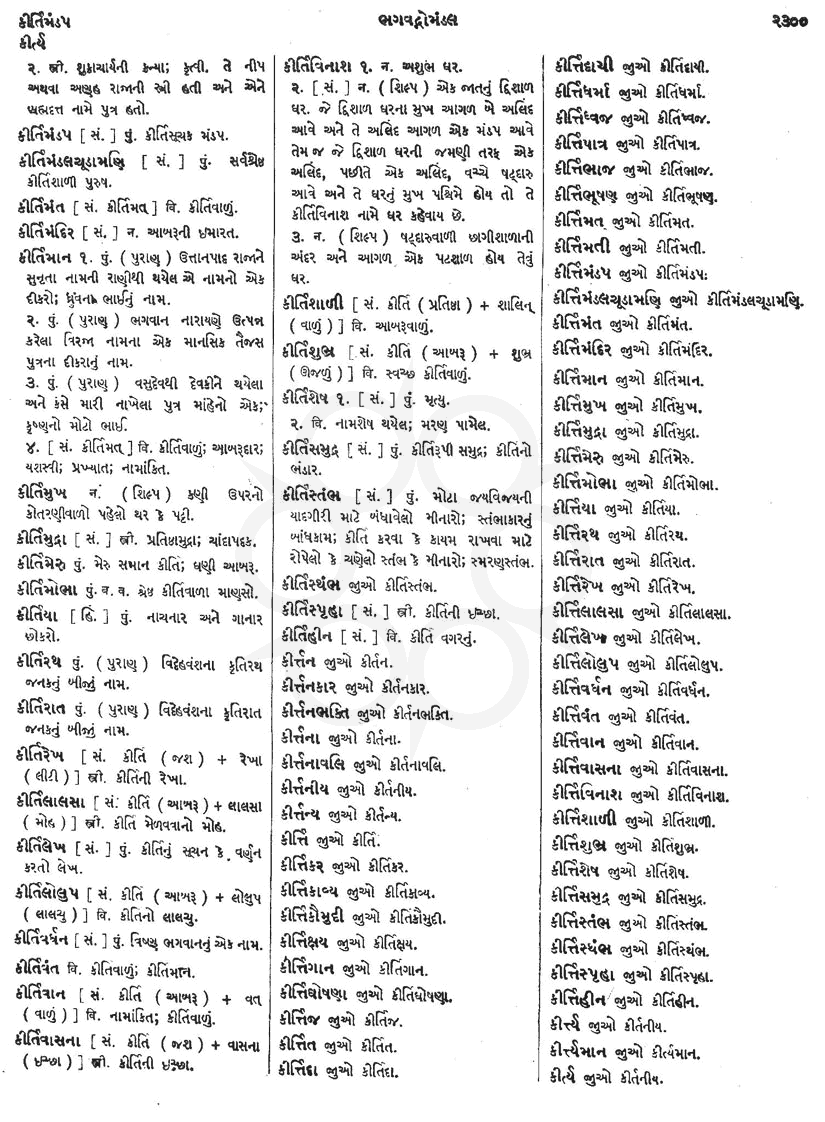 કીર્તિમંડપ
ભગવદ્ગોમંડલ
૨૩૦૦
કીર્ત્ય
૨. સ્ત્રી. શુક્રાચાર્યની કન્યા; કૃત્વી. તે નીપ
અથવા અણુહ રાજાની સ્ત્રી હતી અને એને
બ્રહ્મદત્ત નામે પુત્ર હતો.
કીર્તિમંડપ [ સં. ] પું. કીર્તિસૂચક મંડપ.
કીર્તિમંડલચૂડામણિ [ સં. ] પું. સર્વશ્રેષ્ઠ
કીર્તિશાળી પુરુષ.
કીર્તિમંત [ સં. કીર્તિમત્ ] વિ. કીર્તિવાળું.
કીર્તિમંદિર [ સં. ] ન. આબરૂની ઇમારત.
કીર્તિમાન ૧. પું. ( પુરાણ ) ઉત્તાનપાદ રાજાને
સુનૃતા નામની રાણીથી થયેલ એ નામનો એક
દીકરો; ધ્રુવના ભાઈનું નામ.
૨. પું. ( પુરાણ ) ભગવાન નારાયણે ઉત્પન્ન
કરેલા વિરજા નામના એક માનસિક તૈજસ
પુત્રના દીકરાનું નામ.
૩. પું. ( પુરાણ ) વસુદેવથી દેવકીને થયેલા
અને કંસે મારી નાખેલા પુત્ર માંહેનો એક;
કૃષ્ણનો મોટો ભાઈ.
૪. [ સં. કીર્તિમત્ ] વિ. કીર્તિવાળું; આબરૂદાર;
યશસ્વી; પ્રખ્યાત; નામાંકિત.
કીર્તિમુખ ન. ( શિલ્પ ) કણી ઉપરનો
કોતરણીવાળો પહેલો થર કે પટ્ટી.
કીર્તિમુદ્રા [ સં. ] સ્ત્રી. પ્રતિષ્ઠામુદ્રા; ચાંદાપદક.
કીર્તિમેરુ પું. મેરુ સમાન કીર્તિ; ઘણી આબરૂ.
કીર્તિમોભા પું. બ. વ. શ્રેષ્ઠ કીર્તિવાળા માણસો.
કીર્તિયા [ હિં. ] પું. નાચનાર અને ગાનાર
છોકરો.
કીર્તિરથ પું. ( પુરાણ ) વિદેહવંશના કૃતિરથ
જનકનું બીજું નામ.
કીર્તિરાત પું. ( પુરાણ ) વિદેહવંશના કૃતિરાત
જનકનું બીજું નામ.
કીર્તિરેખ [ સં. કીર્તિ ( જશ ) + રેખા
( લીટી ) ] સ્ત્રી. કીર્તિની રેખા.
કીર્તિલાલસા [ સં. કીર્તિ ( આબરૂ ) + લાલસા
( મોહ ) ] સ્ત્રી. કીર્તિ મેળવવાનો મોહ.
કીર્તિલેખ [ સં. ] પું. કીર્તિનું સૂચન કે વર્ણન
કરતો લેખ.
કીર્તિલોલુપ [ સં. કીર્તિ ( આબરૂ ) + લોલુપ
( લાલચુ ) ] વિ. કીર્તિનો લાલચુ.
કીર્તિવર્ધન [ સં. ] પું. વિષ્ણુ ભગવાનનું એક નામ.
કીર્તિવંત વિ. કીર્તિવાળું; કીર્તિમાન.
કીર્તિવાન [ સં. કીર્તિ ( આબરૂ ) + વત્
( વાળું ) ] વિ. નામાંકિત; કીર્તિવાળું.
કીર્તિવાસના [ સં. કીર્તિ ( જશ ) + વાસના
( ઇચ્છા ) ] સ્ત્રી. કીર્તિની ઇચ્છા.
કીર્તિવિનાશ ૧. ન. અશુભ ઘર.
૨. [ સં. ] ન. ( શિલ્પ ) એક જાતનું દ્વિશાળ
ઘર. જે દ્વિશાળ ઘરના મુખ આગળ બે અલિંદ
આવે અને તે અલિંદ આગળ એક મંડપ આવે
તેમ જ જે દ્વિશાળ ઘરની જમણી તરફ એક
અલિંદ, પછીતે એક અલિંદ, વચ્ચે ષટ્દારુ
આવે અને તે ઘરનું મુખ પશ્ચિમે હોય તો તે
કીર્તિવિનાશ નામે ઘર કહેવાય છે.
૩. ન. ( શિલ્પ ) ષટ્દારુવાળી છાગીશાળાની
અંદર અને આગળ એક પટશાળ હોય તેવું
ઘર.
કીર્તિશાળી [ સં. કીર્તિ ( પ્રતિષ્ઠા ) + શાલિન્
( વાળું ) ] વિ. આબરૂવાળું.
કીર્તિશુભ્ર [ સં. કીર્તિ ( આબરૂ ) + શુભ્ર
( ઊજળું ) ] વિ. સ્વચ્છ કીર્તિવાળું.
કીર્તિશેષ ૧. [ સં. ] પું. મૃત્યુ.
૨. વિ. નામશેષ થયેલ; મરણ પામેલ.
કીર્તિસમુદ્ર [ સં. ] પું. કીર્તિરૂપી સમુદ્ર; કીર્તિનો
ભંડાર.
કીર્તિસ્તંભ [ સં. ] પું. મોટા જયવિજયની
યાદગીરી માટે બંધાવેલો મીનારો; સ્તંભાકારનું
બાંધકામ; કીર્તિ કરવા કે કાયમ રાખવા માટે
રોપેલો કે ચણેલો સ્તંભ કે મીનારો; સ્મરણસ્તંભ.
કીર્તિસ્થંભ જુઓ કીર્તિસ્તંભ.
કીર્તિસ્પૃહા [ સં. ] સ્ત્રી. કીર્તિની ઇચ્છા.
કીર્તિહીન [ સં. ] વિ. કીર્તિ વગરનું.
કીર્ત્તન જુઓ કીર્તન.
કીર્ત્તનકાર જુઓ કીર્તનકાર.
કીર્ત્તનભક્તિ જુઓ કીર્તનભક્તિ.
કીર્ત્તના જુઓ કીર્તના.
કીર્ત્તનાવલિ જુઓ કીર્તનાવલિ.
કીર્ત્તનીય જુઓ કીર્તનીય.
કીર્ત્તન્ય જુઓ કીર્તન્ય.
કીર્ત્તિ જુઓ કીર્તિ.
કીર્ત્તિકર જુઓ કીર્તિકર.
કીર્ત્તિકાવ્ય જુઓ કીર્તિકાવ્ય.
કીર્ત્તિકૌમુદી જુઓ કીર્તિકૌમુદી.
કીર્ત્તિક્ષય જુઓ કીર્તિક્ષય.
કીર્ત્તિગાન જુઓ કીર્તિગાન.
કીર્ત્તિઘોષણા જુઓ કીર્તિઘોષણા.
કીર્ત્તિજ જુઓ કીર્તિજ.
કીર્ત્તિત જુઓ કીર્તિત.
કીર્ત્તિદા જુઓ કીર્તિદા.
કીર્ત્તિદાયી જુઓ કીર્તિદાયી.
કીર્ત્તિધર્મા જુઓ કીર્તિધર્મા.
કીર્ત્તિધ્વજ જુઓ કીર્તિધ્વજ.
કીર્ત્તિપાત્ર જુઓ કીર્તિપાત્ર.
કીર્ત્તિભાજ જુઓ કીર્તિભાજ.
કીર્ત્તિભૂષણ જુઓ કીર્તિભૂષણ.
કીર્ત્તિમત્ જુઓ કીર્તિમત.
કીર્ત્તિમતી જુઓ કીર્તિમતી.
કીર્ત્તિમંડપ જુઓ કીર્તિમંડપ.
કીર્ત્તિમંડલચૂડામણિ જુઓ કીર્તિમંડલચૂડામણિ.
કીર્ત્તિમંત જુઓ કીર્તિમંત.
કીર્ત્તિમંદિર જુઓ કીર્તિમંદિર.
કીર્ત્તિમાન જુઓ કીર્તિમાન.
કીર્ત્તિમુખ જુઓ કીર્તિમુખ.
કીર્ત્તિમુદ્રા જુઓ કીર્તિમુદ્રા.
કીર્ત્તિમેરુ જુઓ કીર્તિમેરુ.
કીર્ત્તિમોભા જુઓ કીર્તિમોભા.
કીર્ત્તિયા જુઓ કીર્તિયા.
કીર્ત્તિરથ જુઓ કીર્તિરથ.
કીર્ત્તિરાત જુઓ કીર્તિરાત.
કીર્ત્તિરેખ જુઓ કીર્તિરેખ.
કીર્ત્તિલાલસા જુઓ કીર્તિલાલસા.
કીર્ત્તિલેખ જુઓ કીર્તિલેખ.
કીર્ત્તિલોલુપ જુઓ કીર્તિલોલુપ.
કીર્ત્તિવર્ધન જુઓ કીર્તિવર્ધન.
કીર્ત્તિવંત જુઓ કીર્તિવંત.
કીર્ત્તિવાન જુઓ કીર્તિવાન.
કીર્ત્તિવાસના જુઓ કીર્તિવાસના.
કીર્ત્તિવિનાશ જુઓ કીર્તિવિનાશ.
કીર્ત્તિશાળી જુઓ કીર્તિશાળી.
કીર્ત્તિશુભ્ર જુઓ કીર્તિશુભ્ર.
કીર્ત્તિશેષ જુઓ કીર્તિશેષ.
કીર્ત્તિસમુદ્ર જુઓ કીર્તિસમુદ્ર.
કીર્ત્તિસ્તંભ જુઓ કીર્તિસ્તંભ.
કીર્ત્તિસ્થંભ જુઓ કીર્તિસ્થંભ.
કીર્ત્તિસ્પૃહા જુઓ કીર્તિસ્પૃહા.
કીર્ત્તિહીન જુઓ કીર્તિહીન.
કીર્ત્ત્ય જુઓ કીર્તનીય.
કીર્ત્ત્યમાન જુઓ કીર્ત્યમાન.
કીર્ત્ય જુઓ કીર્તનીય.